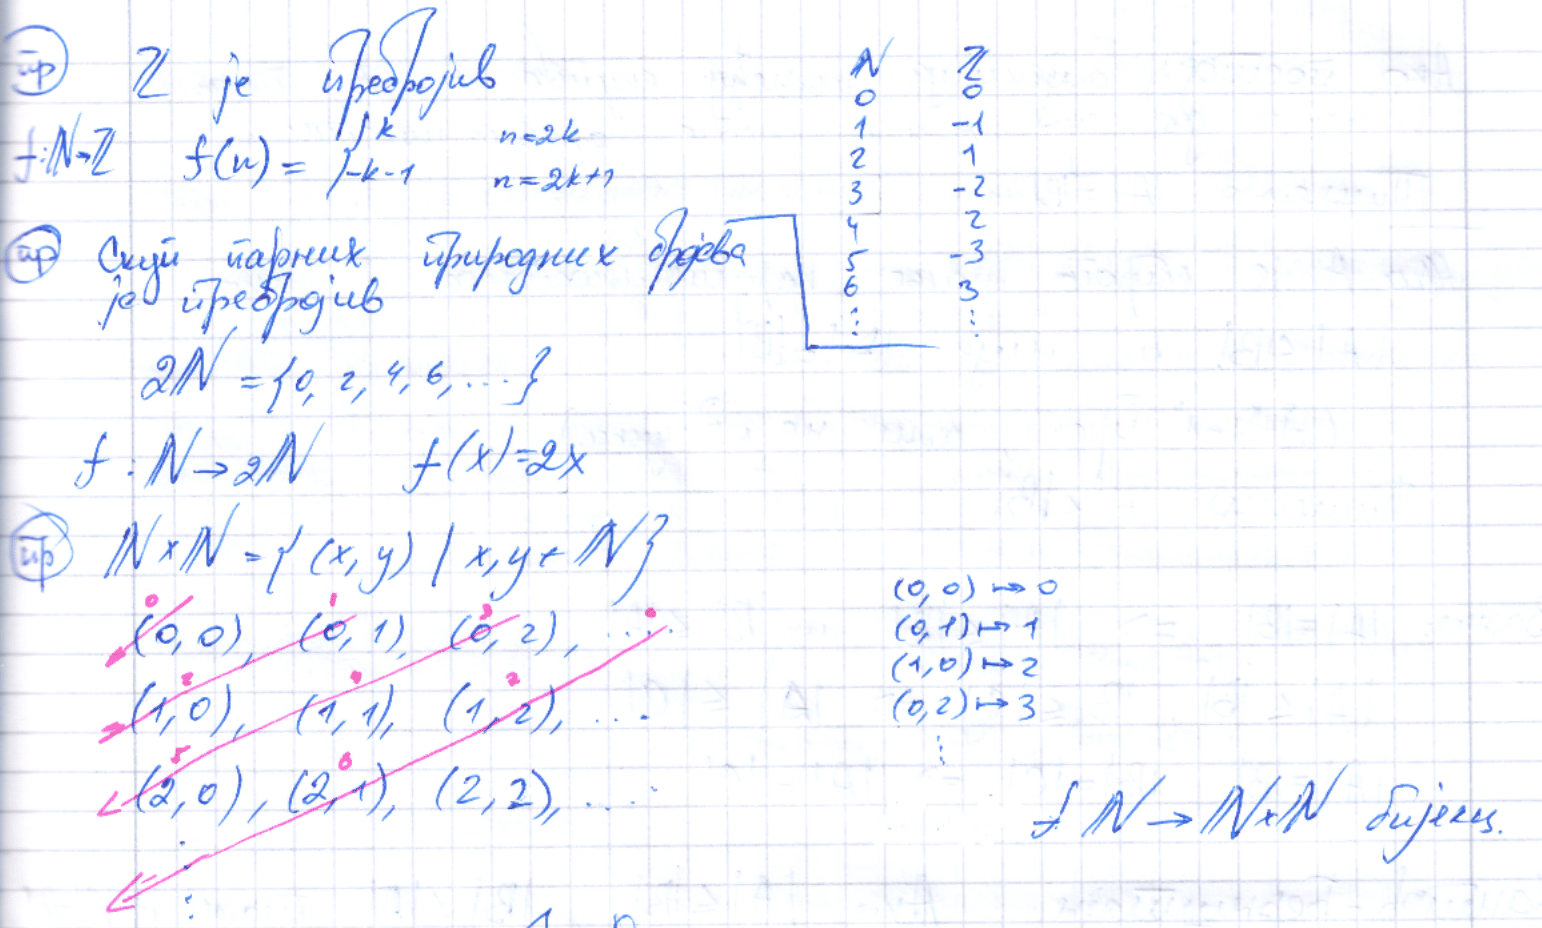 пр ℤ је пребројив
f:ℕ→ℤ f(n) = { k n=2k
-k-1 n=2k+1
ℕ ℤ
0 0
1 -1
2 1
3 -2
4 2
5 -3
6 3
⋮ ⋮
пр Скуп парних природних бројева
је пребројив
2ℕ = {0, 2, 4, 6, ...}
f : ℕ → 2ℕ f(x)=2x
пр ℕ×ℕ = { (x, y) | x, y ∈ ℕ }
0 1 3
(0,0), (0,1), (0,2), ....
2 4 7
(1,0), (1,1), (1,2), ....
5 8
(2,0), (2,1), (2,2), ....
⋮
(0,0) ↦ 0
(0,1) ↦ 1
(1,0) ↦ 2
(0,2) ↦ 3
⋮
f ℕ → ℕ×ℕ бијекц.